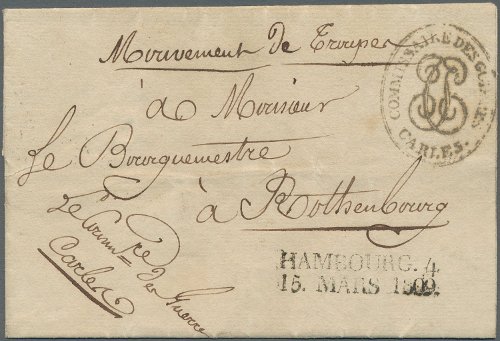 Mouvement de Troupes
COMMISSAIRE DES GUERRES
CARLES.
à Monsieur
Le Bourguemestre
à Rothenbourg
Le Commre des Guerre
Carles
HAMBOURG. 4
15. MARS 1809.